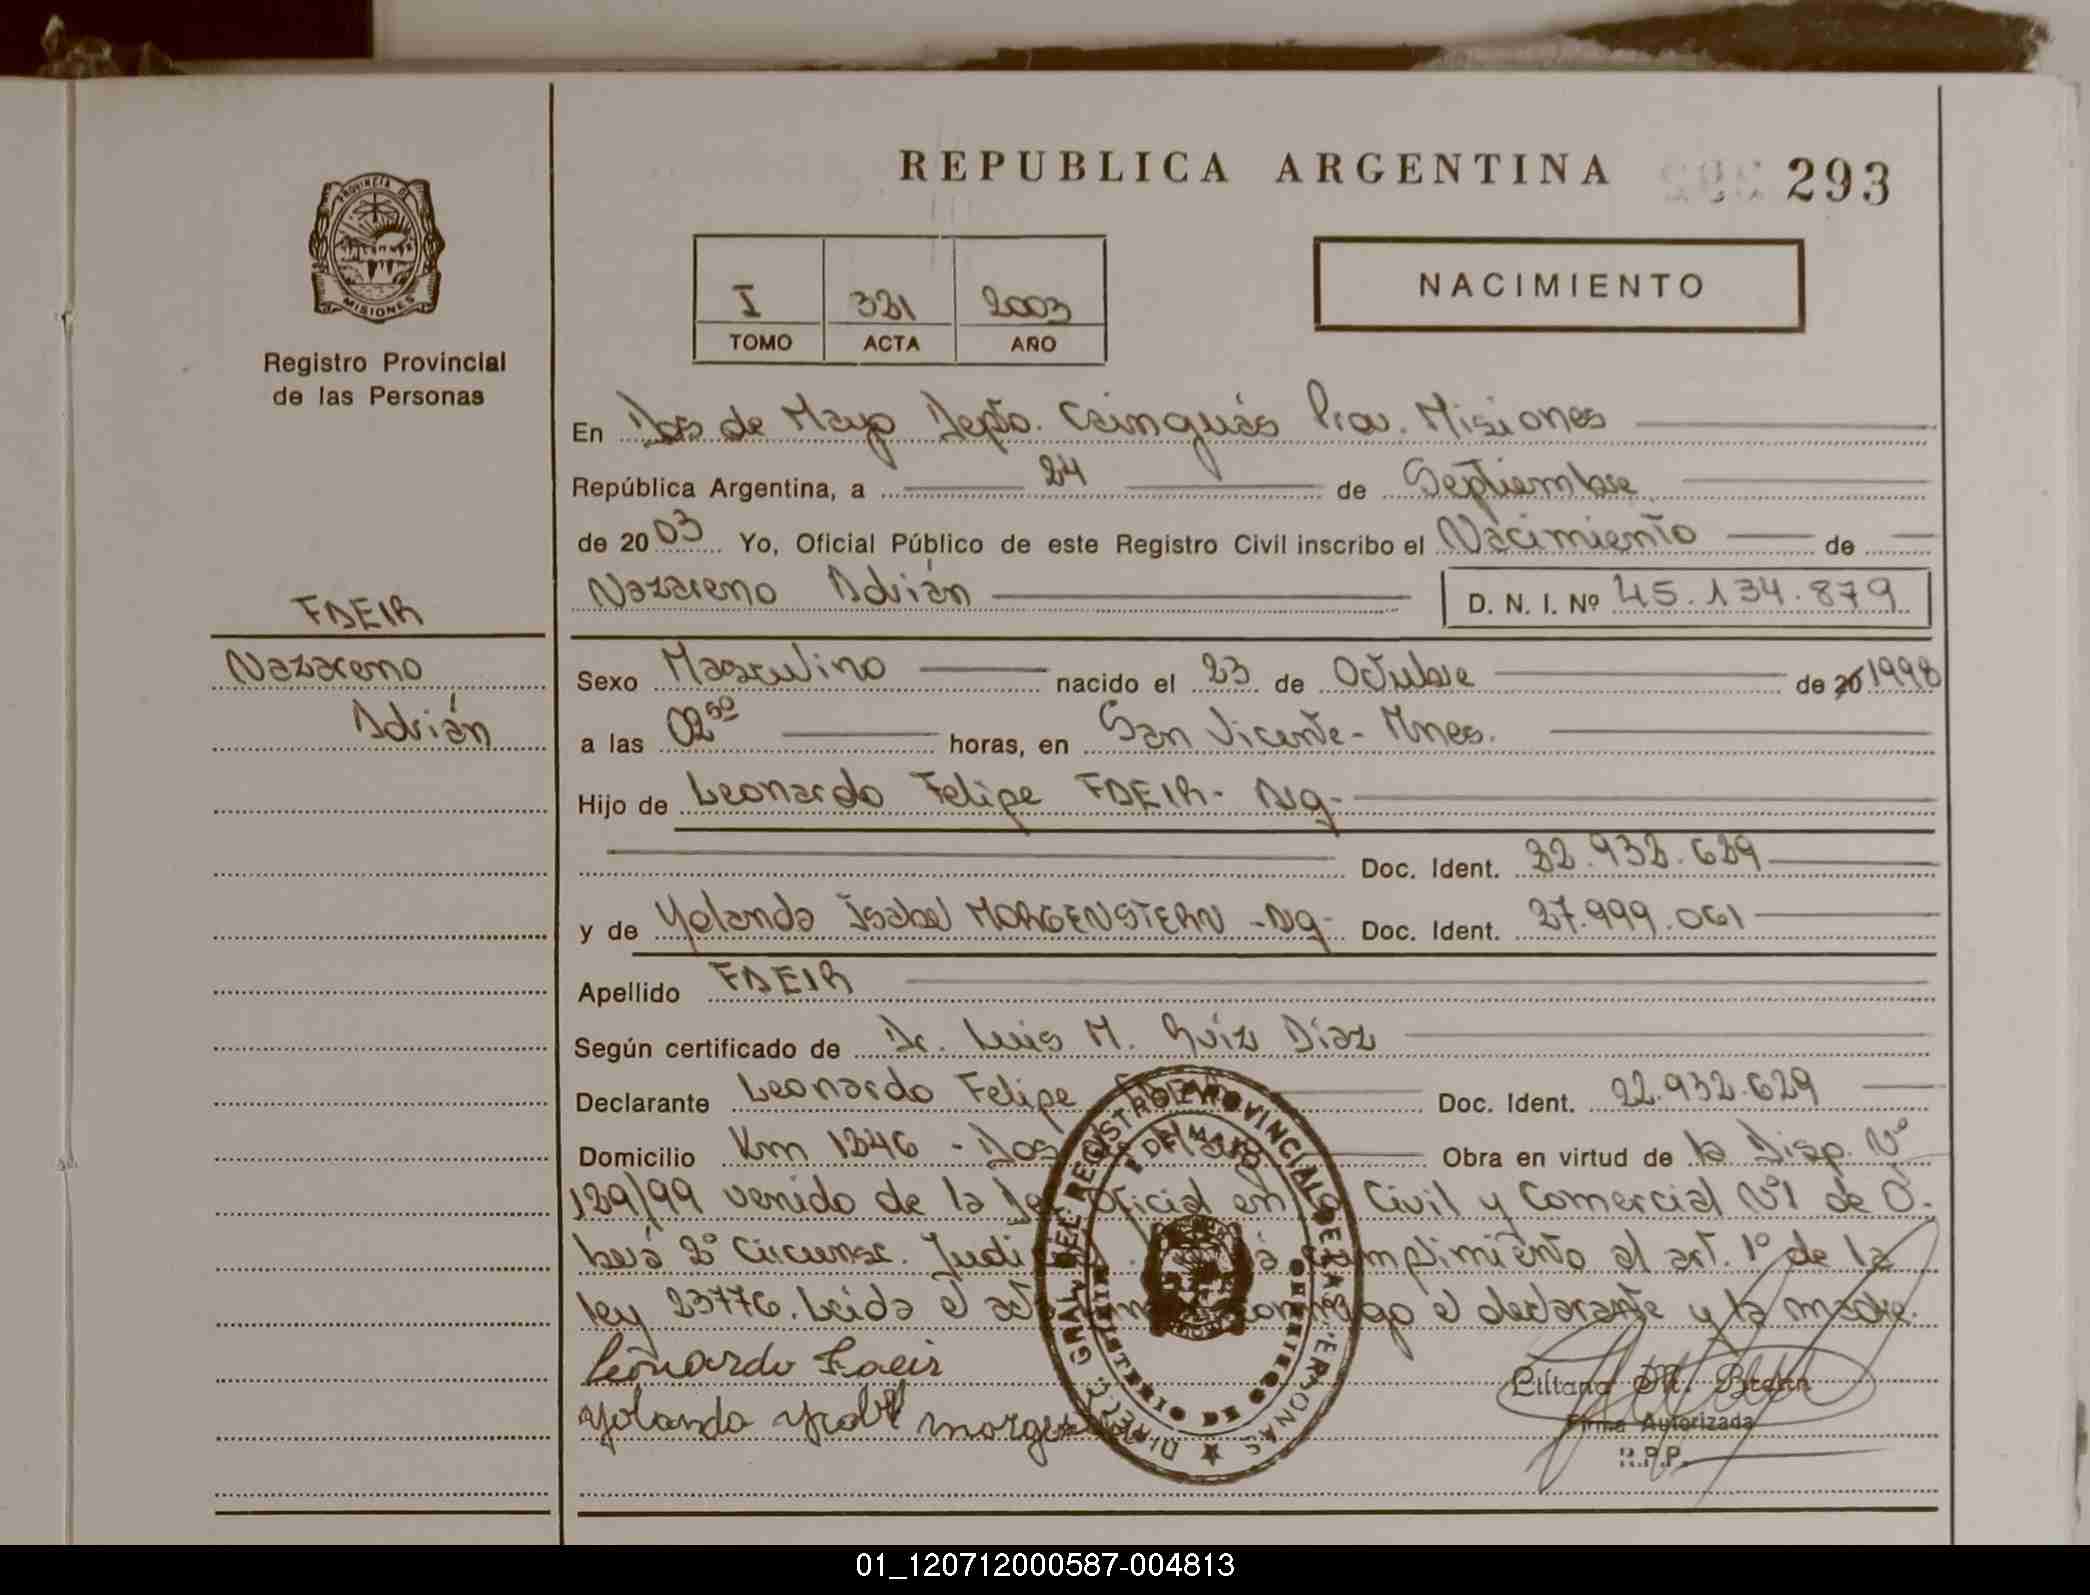 REPUBLICA ARGENTINA 293
PROVINCIA DE
MISIONES
Registro Provincial
de las Personas
I 321 2003
TOMO ACTA AÑO
NACIMIENTO
En Dos de Mayo Depto. Cainguás Prov. Misiones
República Argentina, a 24 de Septiembre
de 2003 Yo, Oficial Público de este Registro Civil inscribo el Nacimiento de
Nazareno Adrián D. N. I. Nº 45.134.879
FAEIR
Nazareno
Adrián
Sexo Masculino nacido el 23 de Octubre de 20 1998
a las 02⁵⁰ horas, en San Vicente - Mnes.
Hijo de Leonardo Felipe FAEIR - Arg -
Doc. Ident. 22.932.629
y de Yolanda Isabel MORGENSTERN - Arg - Doc. Ident. 27.999.061
Apellido FAEIR
Según certificado de Dr. Luis M. Ruiz Díaz
Declarante Leonardo Felipe Doc. Ident. 22.932.629
Domicilio Km 1246 - Dos de Mayo Obra en virtud de la Disp. Nº
129/99 venido de la Def. Oficial en lo Civil y Comercial Nº1 de O.
berá 2º Circunsc. Judicial. cumplimiento al art. 1º de la
ley 23776. Leida el acta conmigo el declarante y la madre.
Leonardo Faeir
Yolanda Ysabel morgen
GRAL DEL REGISTRO PROVINCIAL DE LAS PERSONAS
2 DE MAYO
Liliana M.
Firma Autorizada
R.P.P.
01_120712000587-004813